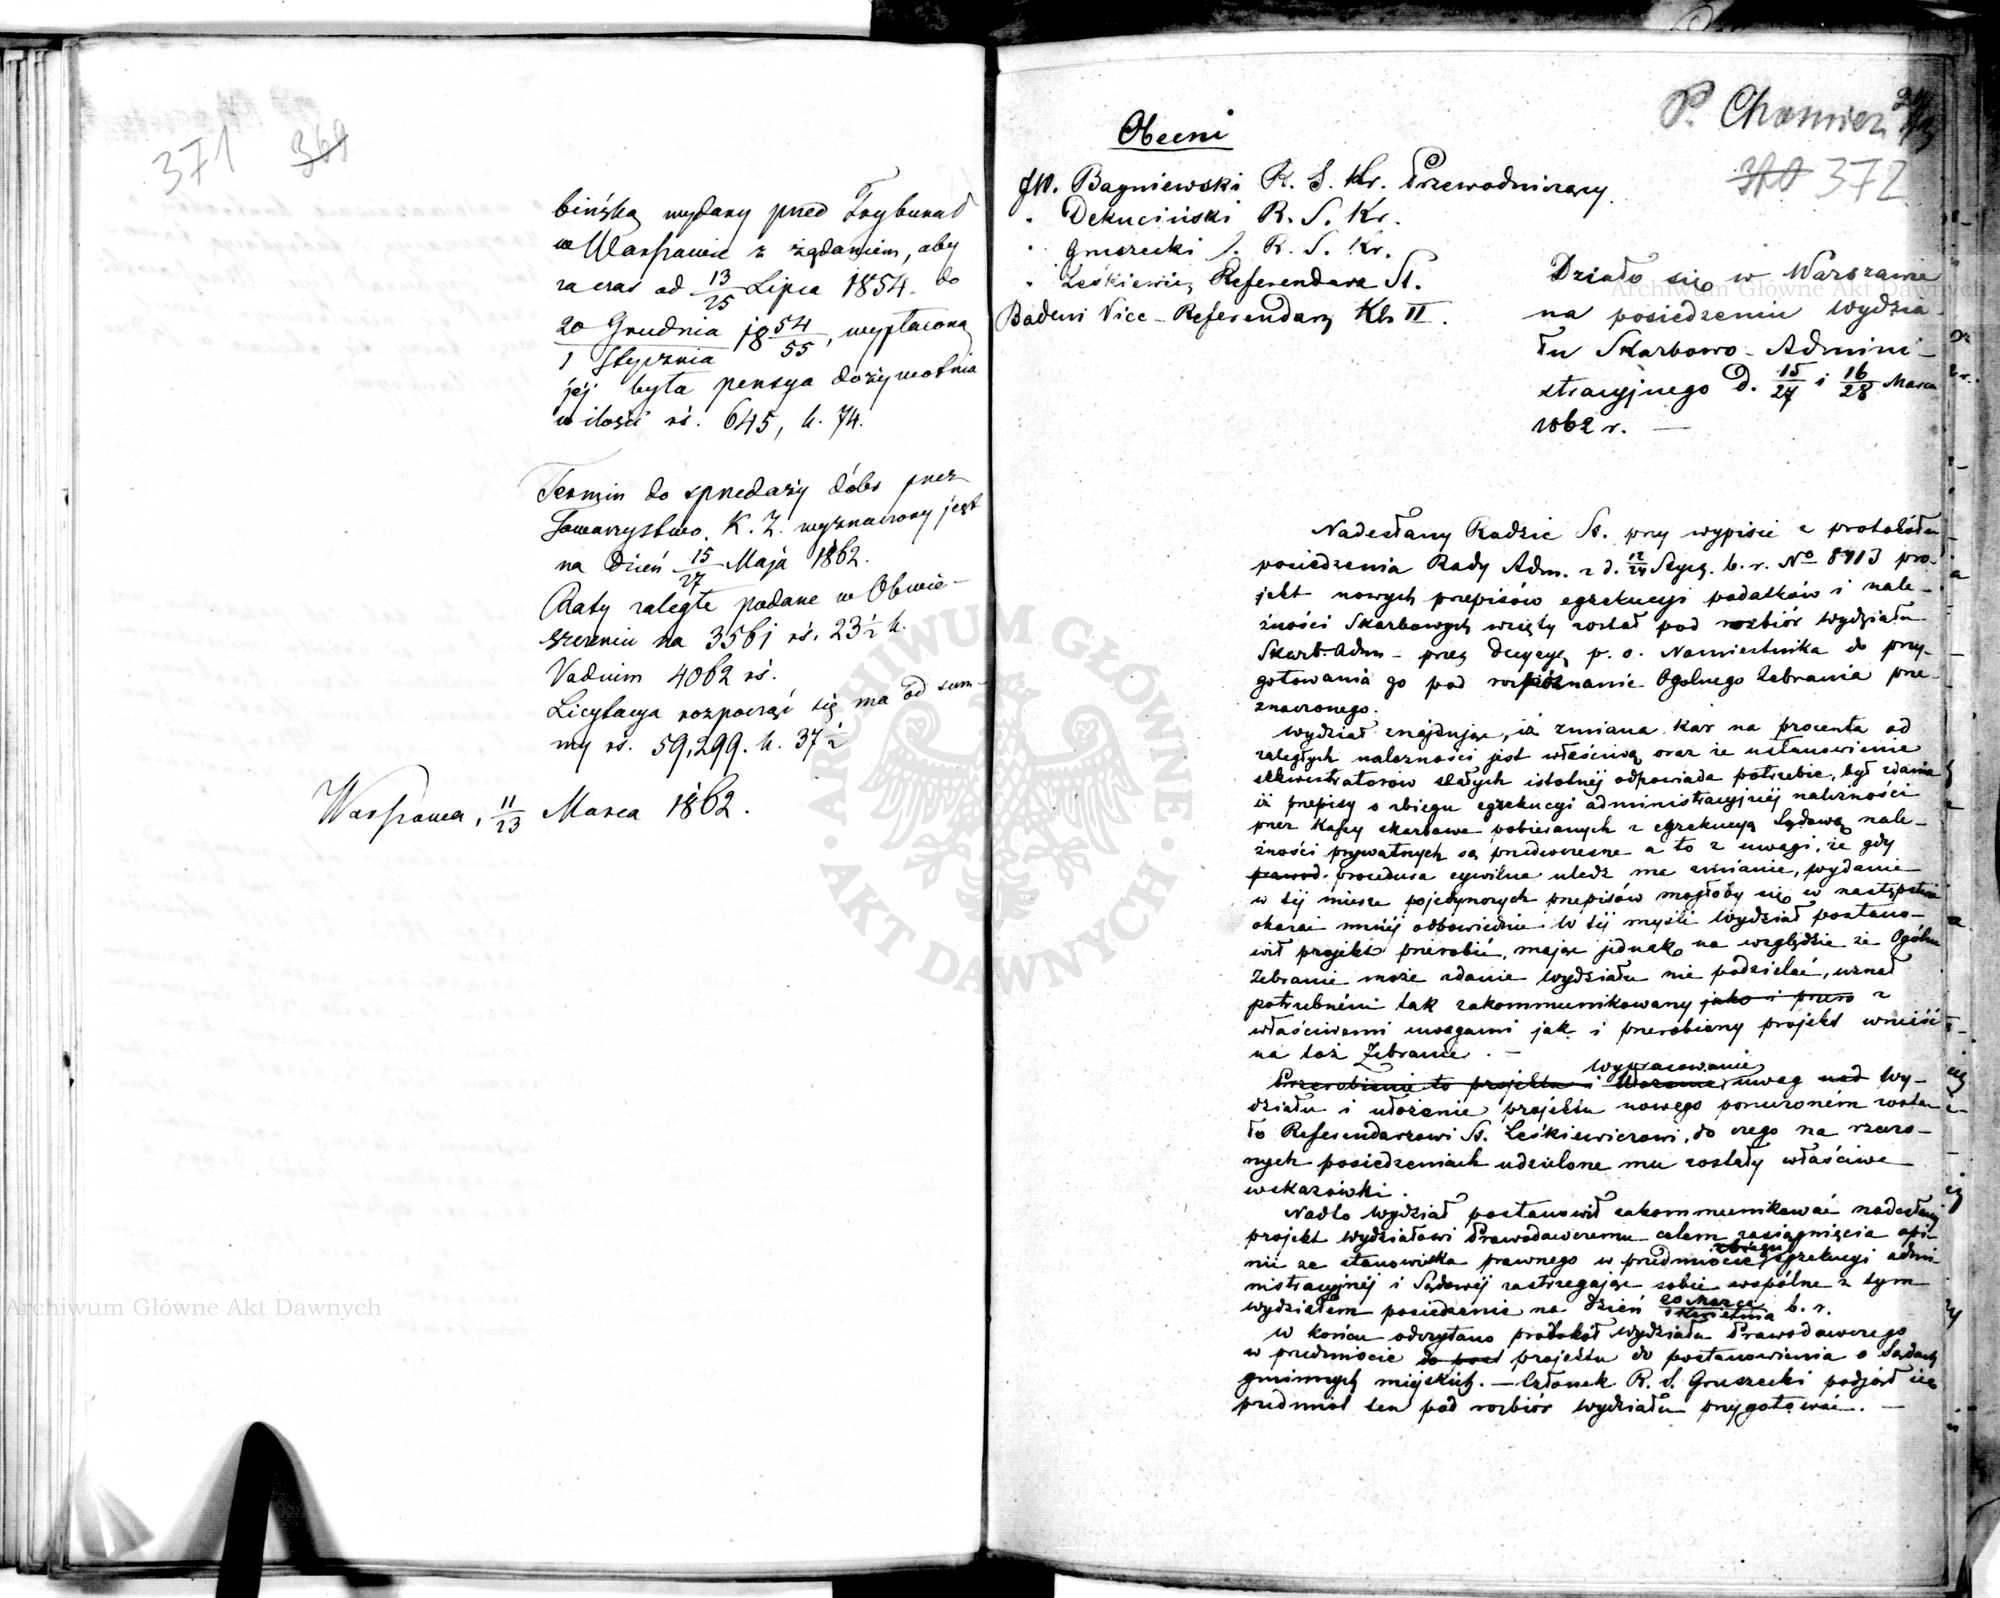 371 369
bińską wydany przed Trybunał
w Warszawie z żądaniem, aby
za czas od 13/25 Lipca 1854 do
20 Grudnia / 1 Stycznia 18 54/55, wypłaconą
jéj była pensya dożywotnia
w ilości rś. 645, k. 74.
Termin do sprzedaży dóbr przez
Towarzystwo K. Z. wyznaczony jest
na dzień 15/27 Maja 1862.
Raty zaległe podane w Obwie-
szczeniu na 3561 rś. 23 1/2 k.
Vadium 4062 rś.
Licytacya rozpocząć się ma od sum-
my rś. 59,299. k. 37 1/2
Warszawa, 11/23 Marca 1862.
P. Chœmicz
370 372
Obecni
JW. Bagniewski R. S. Kr. Przewodniczący.
" Dekuciński R. S. Kr.
" Gruszecki J. R. S. Kr.
" Leśkiewicz Referendarz St.
Badeni Vice-Referendarz Kl. II.
Działo się w Warszawie
na posiedzeniu Wydzia-
łu Skarbowo-Admini-
stracyjnego d. 15/27 i 16/28 Marca
1862 r. —
Nadesłany Radzie St. przy wypisie z protokółu
posiedzenia Rady Adm. z d. 12/24 Stycz. b. r. No 8913 pro-
jekt nowych przepisów egzekucyi podatków i nale-
żności Skarbowych wzięty został pod rozbiór Wydziału
Skarb. Adm - przez decyzyę p. o. Namiestnika do przy-
gotowania go pod rozpoznanie Ogólnego Zebrania prze-
znaczonego.
Wydział znajdując, iż zmiana kar na procenta od
zaległych należności jest właściwą oraz że ustanowienie
sekwestratorów stałych istotnéj odpowiada potrzebie, był zdania
iż przepisy o zbiegu egzekucyi administracyjnéj należności
przez Kassy skarbowe pobieranych z egzekucyą Sądową nale-
żności prywatnych są przedwczesne a to z uwagi, że gdy
prawod. procedura cywilna uledz ma zmianie, wydanie
w téj mierze pojedynczych przepisów mogłoby się w następstwie
okazać mniéj odpowiednie. W téj myśli Wydział postano-
wił projekt przerobić, mając jednak na względzie że Ogólne
Zebranie może zdanie Wydziału nie podzielać, uznał
potrzebném tak zakommunikowany jako i przero z
właściwemi uwagami jak i przerobiony projekt wnieść
na toż Zebranie. —
Wypracowanie
Przerobienie to projektu i uwag nad Wy-
działu i ułożenie projektu nowego poruczoném zosta-
ło Referendarzowi St. Leśkiewiczowi, do czego na rzeczo-
nych posiedzeniach udzielone mu zostały właściwe
wskazówki.
Nadto Wydział postanowił zakommunikować nadesłany
projekt Wydziałowi Prawodawczemu celem zasiągnięcia opi-
nii ze stanowiska prawnego w przedmiocie zbiegu egzekucyi admi-
nistracyjnéj i Sądowéj zastrzegając sobie wspólne z tym
wydziałem posiedzenie na dzień 20 Marca / 1 Kwietnia b. r.
W końcu odczytano protokół Wydziału Prawodawczego
w przedmiocie do post projektu do postanowienia o Sądach
gminnych miejskich. — Członek R. S. Gruszecki podjął się
przedmiot ten pod rozbiór Wydziału przygotować. —
Archiwum Główne Akt Dawnych
Archiwum Główne Akt Dawnych
ARCHIWUM GŁÓWNE · AKT DAWNYCH ·